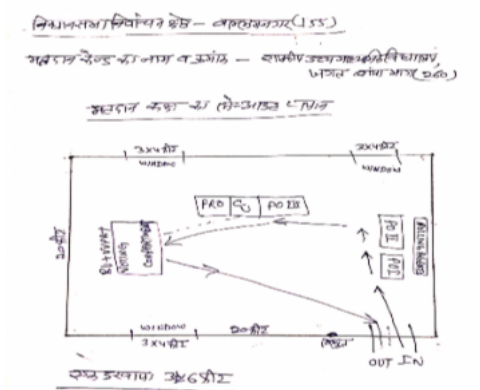 विधानसभा निर्वाचन क्षेत्र - वल्लभनगर (155)
मतदान केन्द्र का नाम व क्रमांक - राजकीय उच्च माध्यमिक विद्यालय,
भाग (260)
मतदान कक्ष का ले-आउट प्लान
3x4 फीट
WINDOW
3x4 फीट
WINDOW
PRO CU PO III
20 फीट
BU+VVPAT
VOTING
COMPARTMENT
PO II
PO I
POLLING AGENTS
WINDOW
3x4 फीट
20 फीट
OUT IN
3x6 फीट